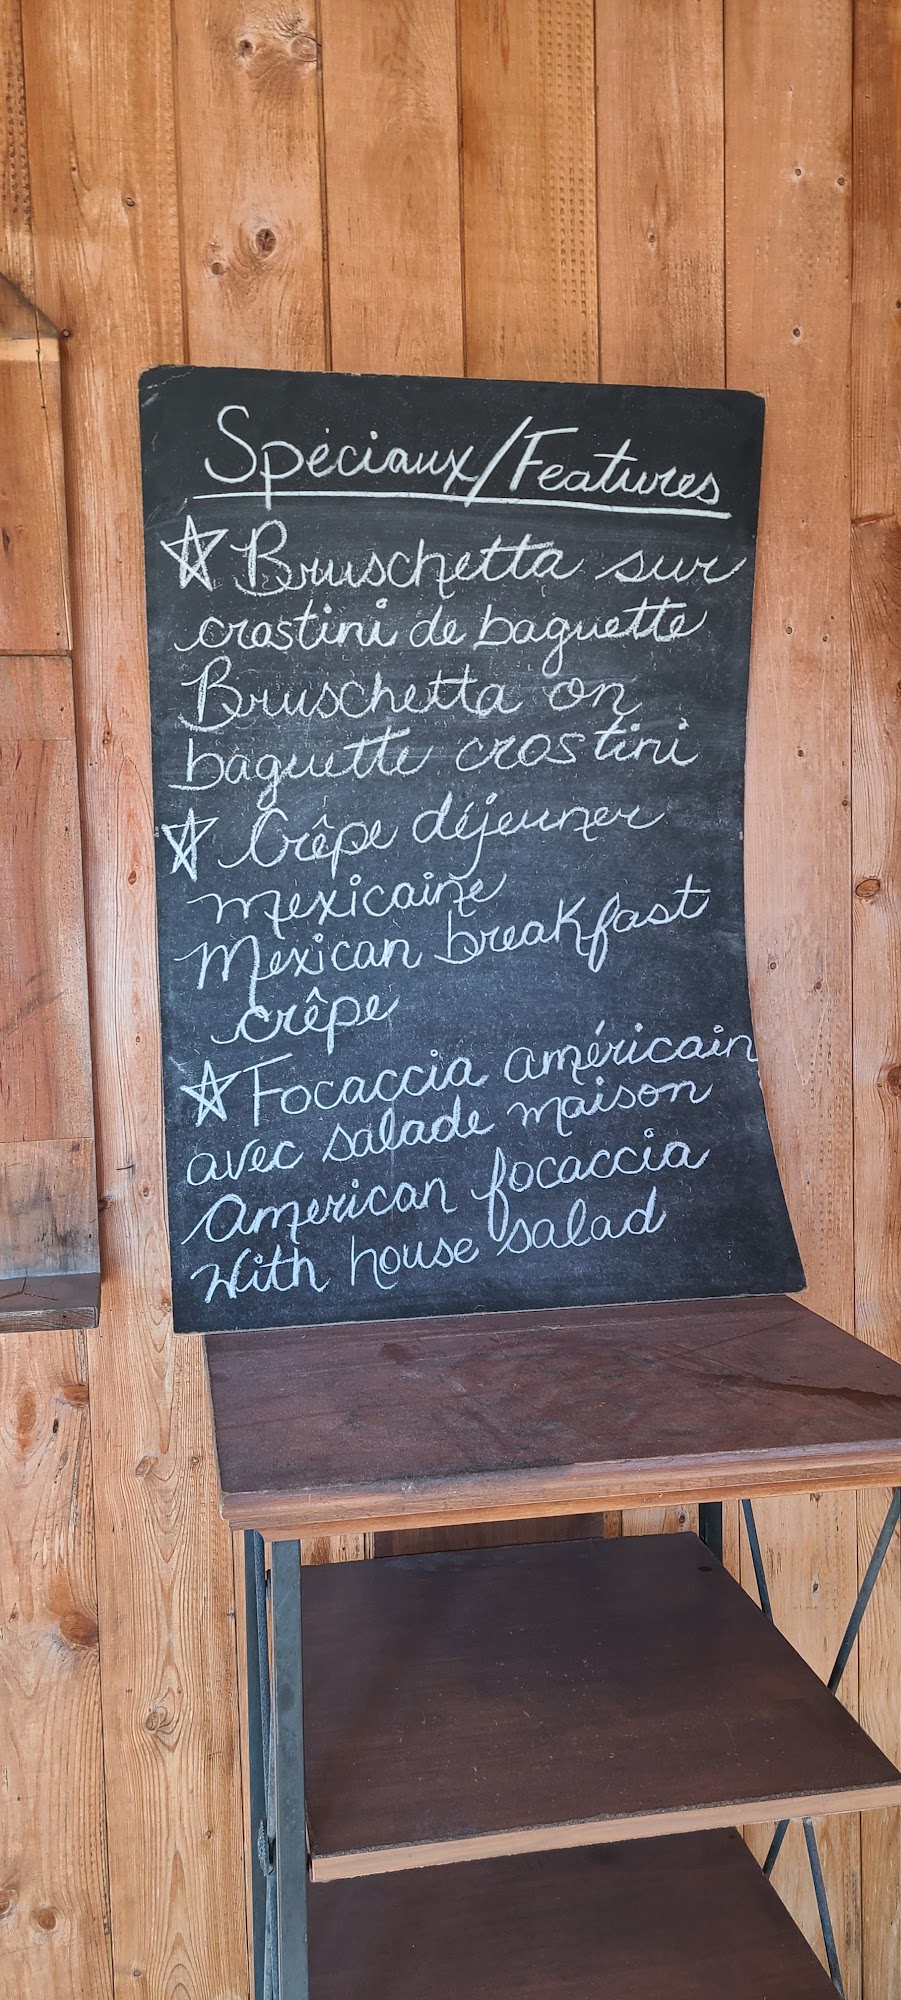 Spéciaux/Features
☆ Bruschetta sur
crostini de baguette
Bruschetta on
baguette crostini
☆ Crêpe déjeuner
mexicaine
Mexican breakfast
crêpe
☆ Focaccia américain
avec salade maison
American focaccia
With house salad